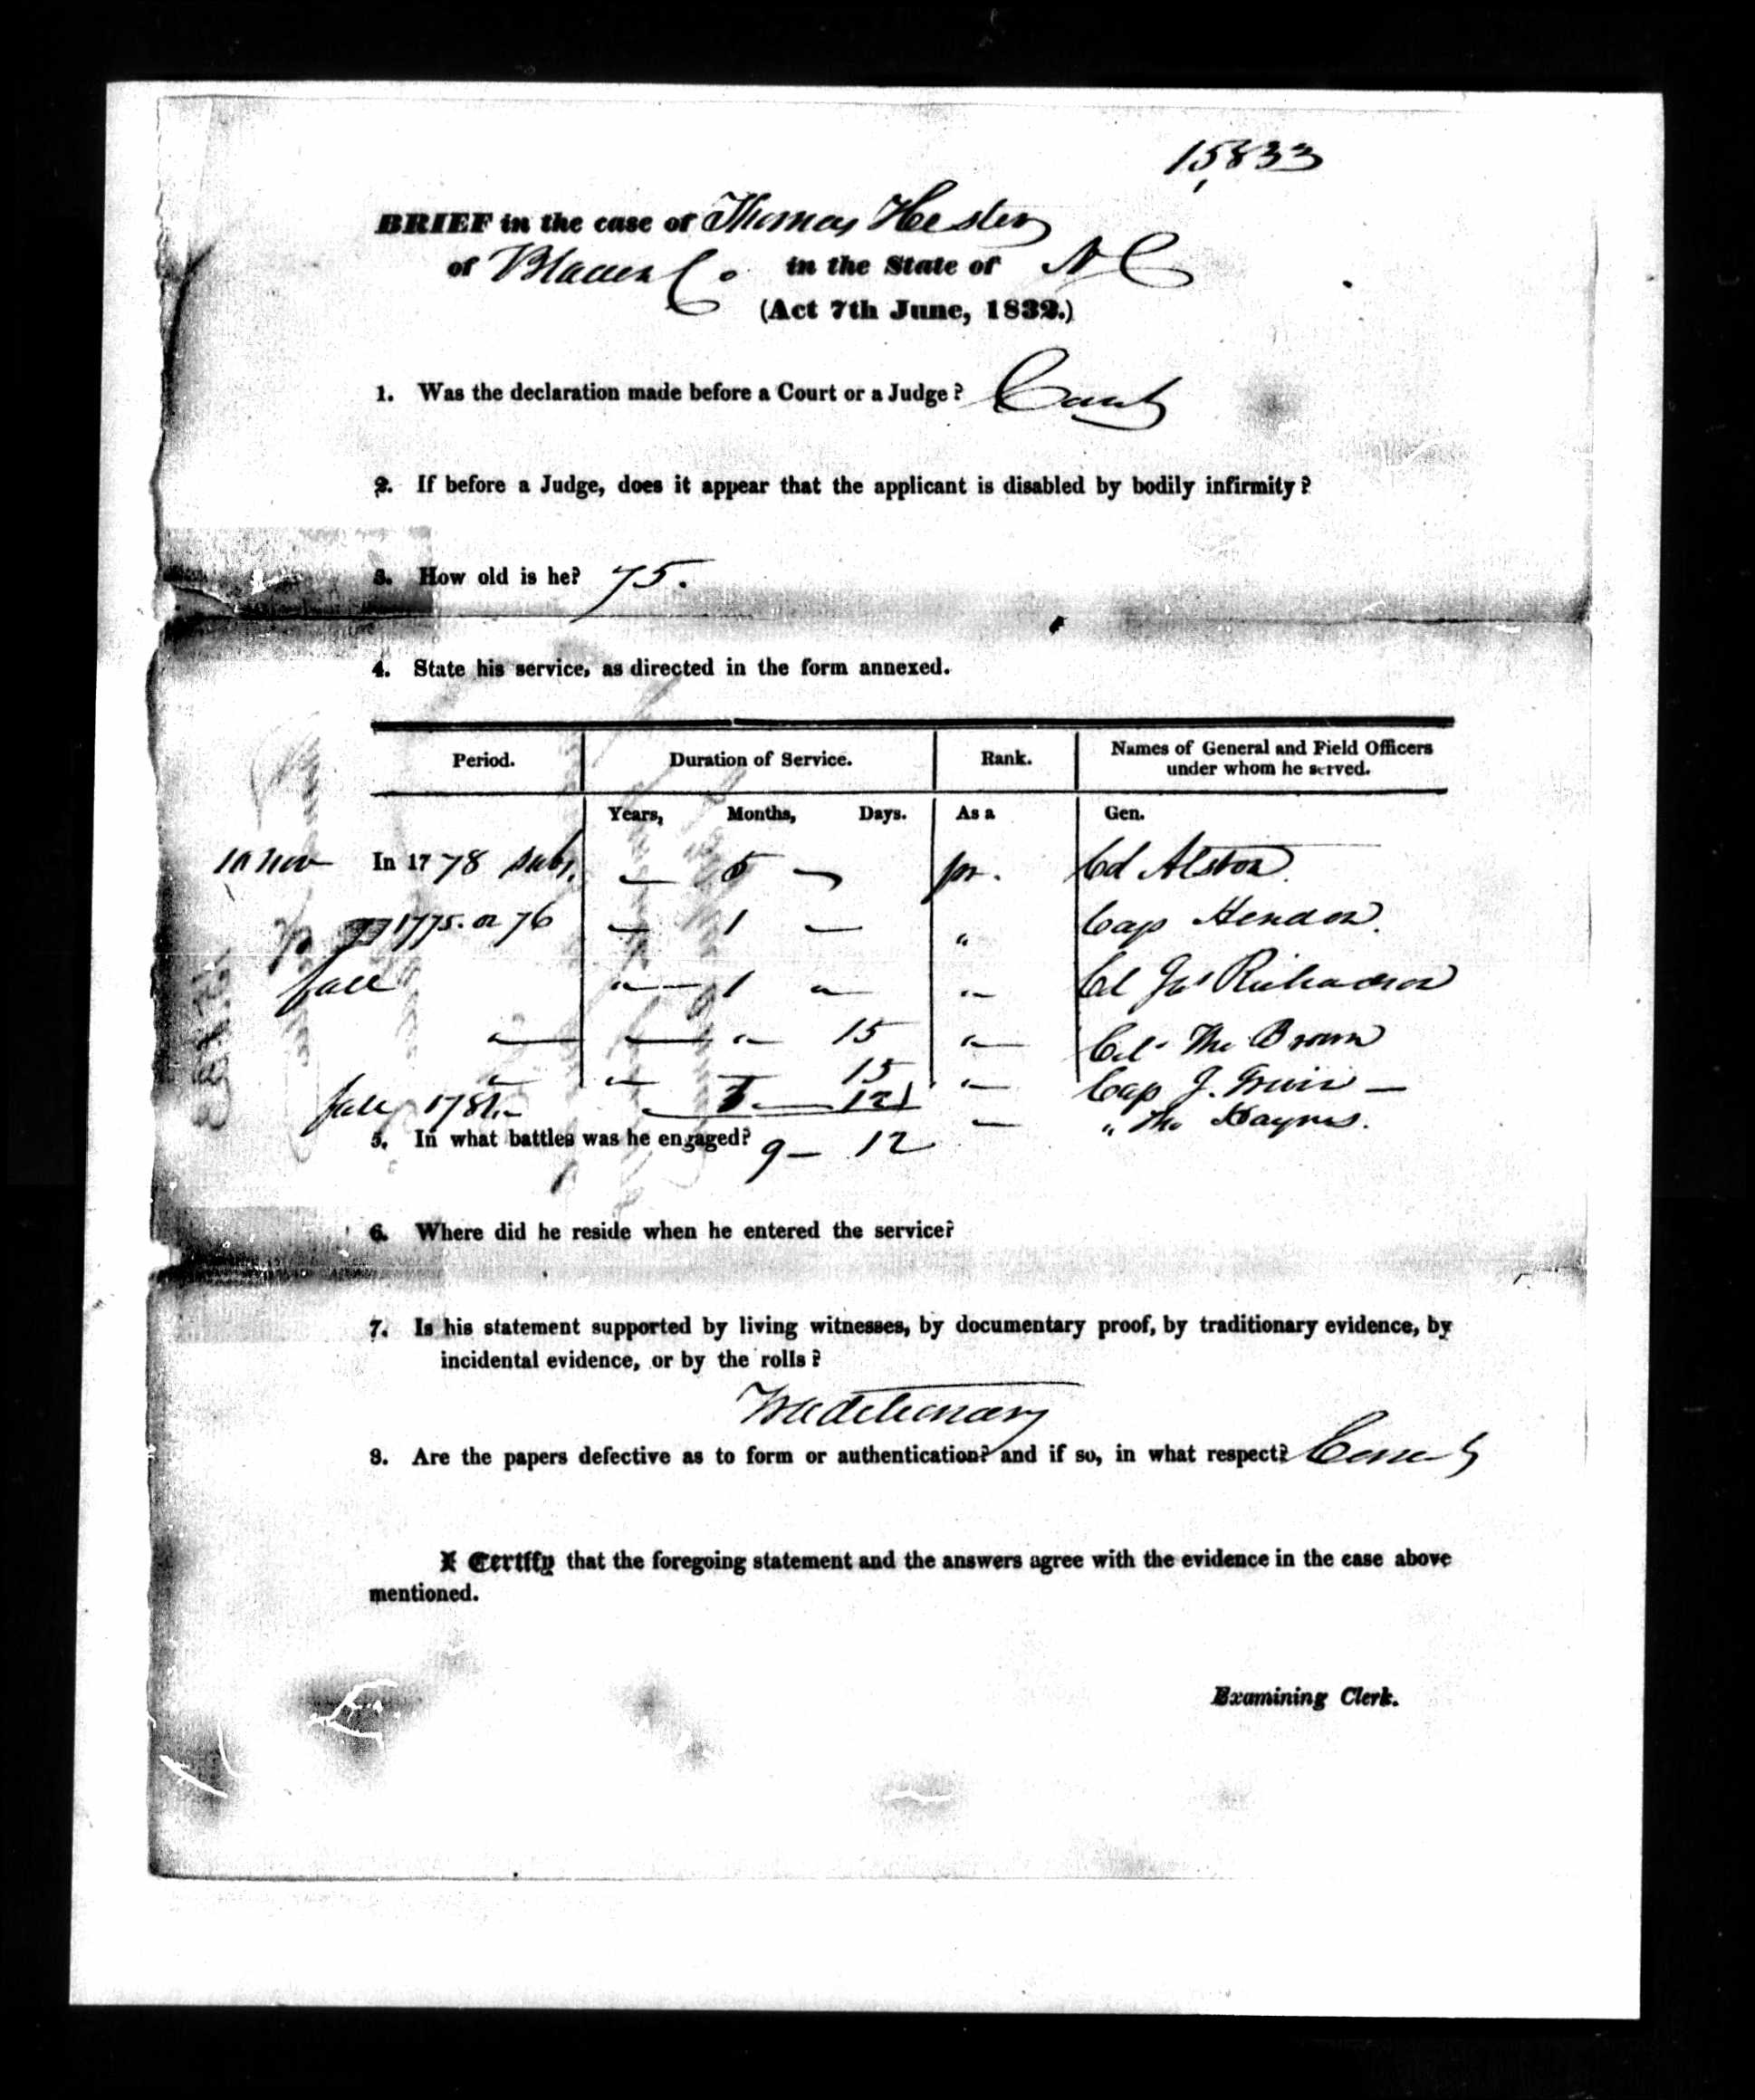 15833
BRIEF in the case of Thomas Hester
of Bladen Co in the State of N C
(Act 7th June, 1832.)
1. Was the declaration made before a Court or a Judge? Court
2. If before a Judge, does it appear that the applicant is disabled by bodily infirmity?
3. How old is he? 75.
4. State his service, as directed in the form annexed.
Period. Duration of Service. Rank. Names of General and Field Officers
under whom he served.
Years, Months, Days. As a Gen.
10 Nov In 1778 subs. — 5 — pr. Col Alston
1775 or 76 — 1 — " Cap Hendon.
fall " — 1 " " Col Jas Richardson
— — " 15 " Col. Tho Brown
" " — 15 " Cap J. Irwin —
fall 1781 — — 12 — " Tho Haynes.
5. In what battles was he engaged? 9 — 12
6. Where did he reside when he entered the service?
7. Is his statement supported by living witnesses, by documentary proof, by traditionary evidence, by
incidental evidence, or by the rolls?
Traditionary
8. Are the papers defective as to form or authentication? and if so, in what respect? Correct
I Certify that the foregoing statement and the answers agree with the evidence in the case above
mentioned.
Examining Clerk.